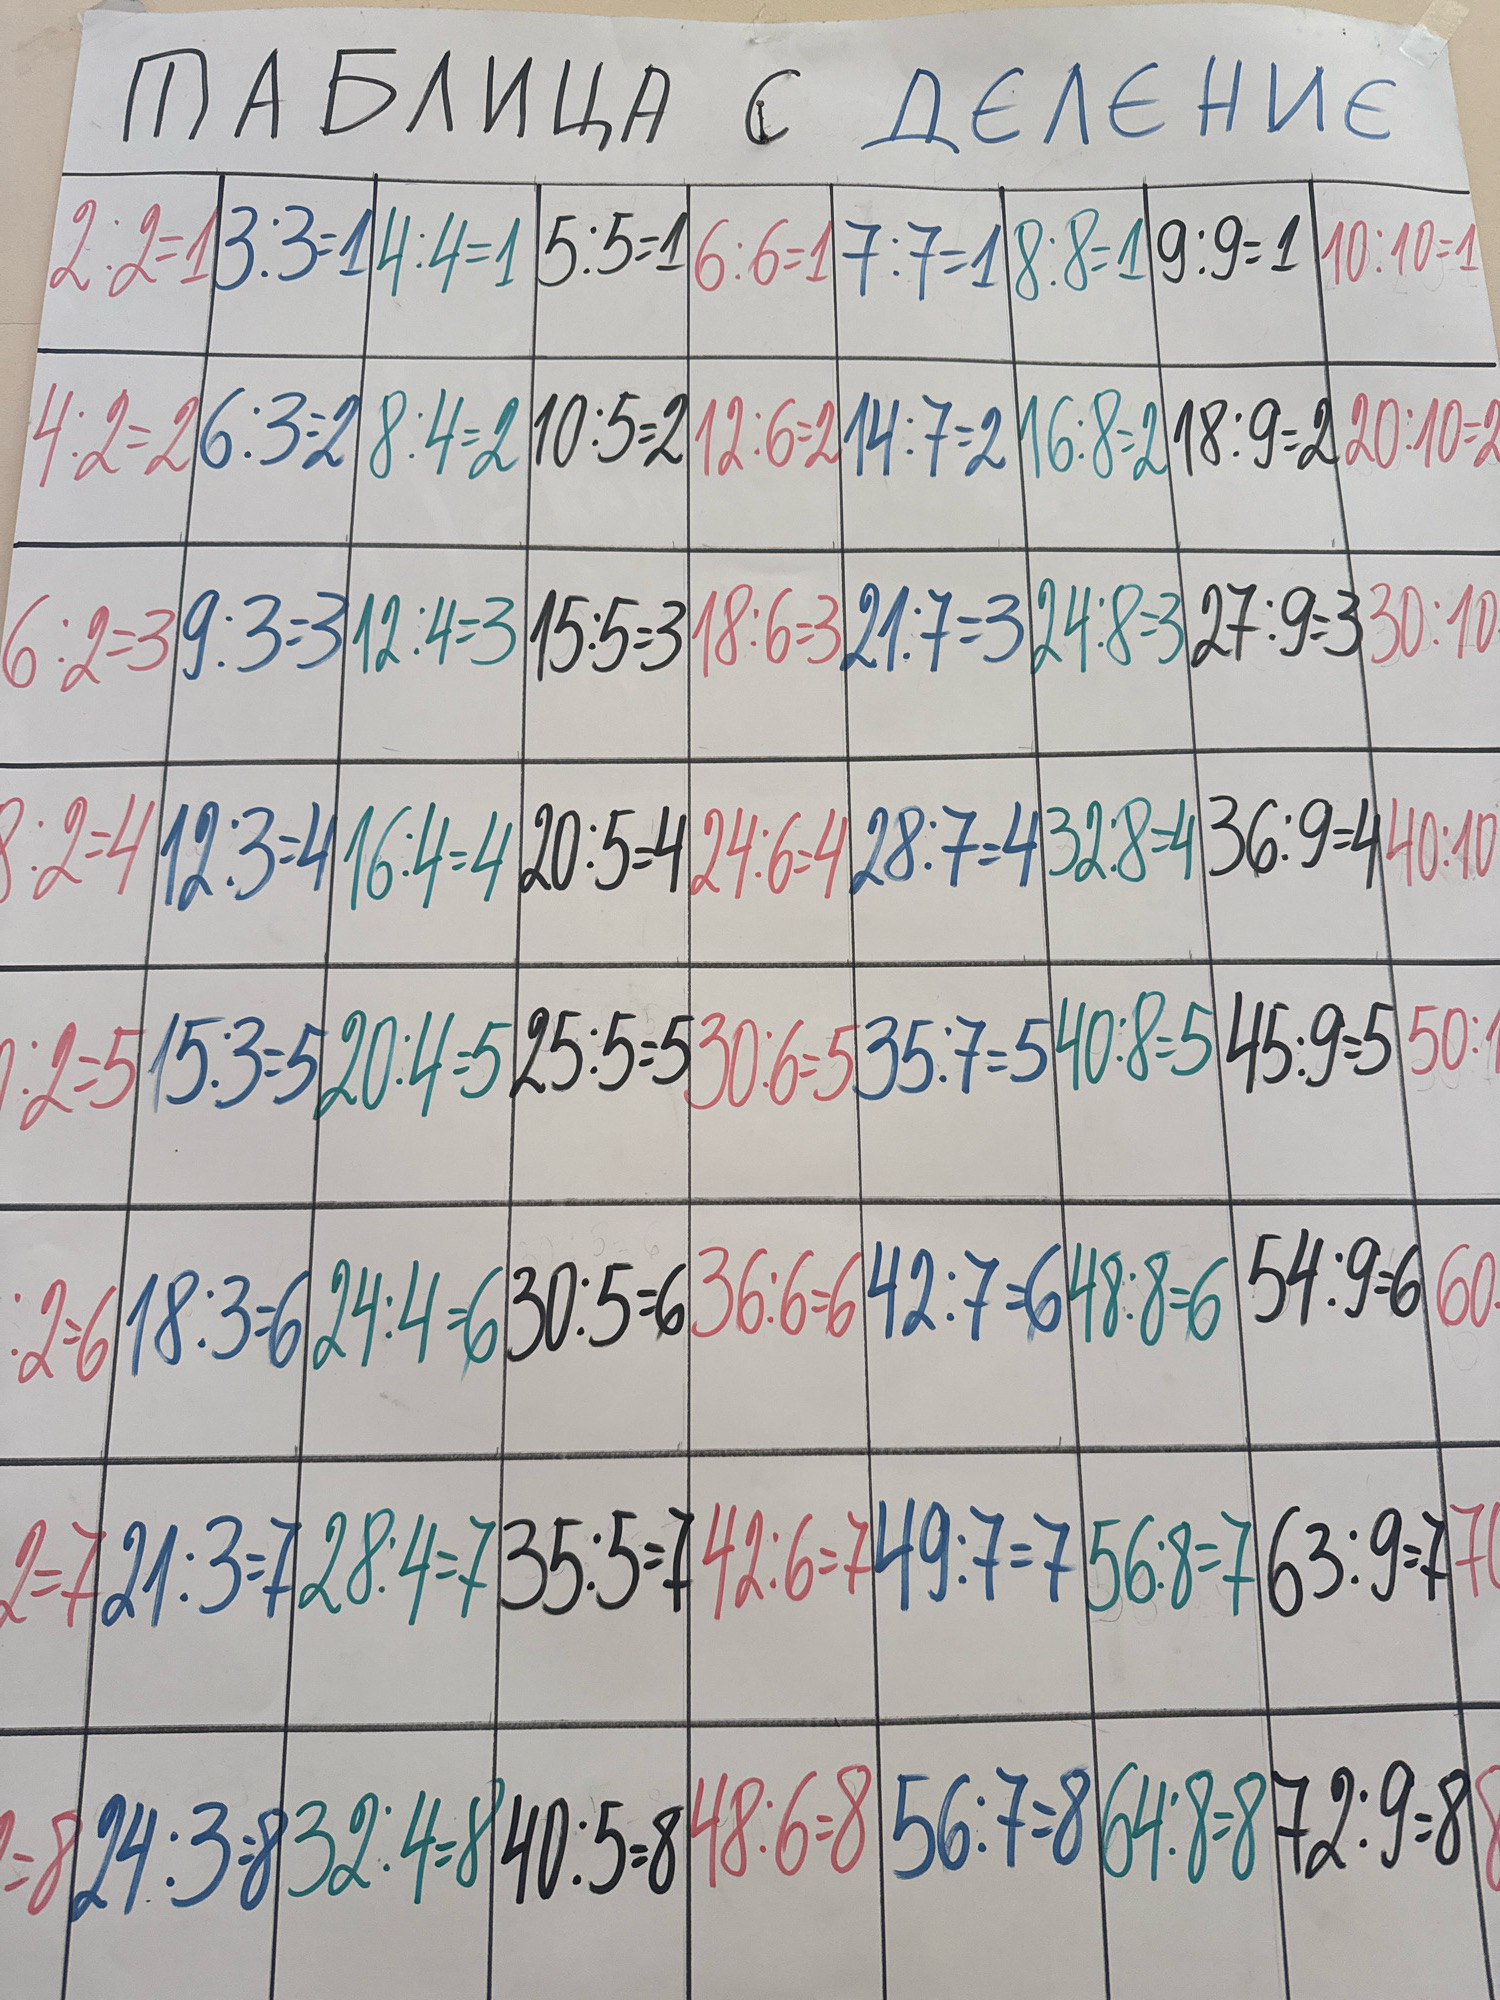 ТАБЛИЦА С ДЕЛЕНИЕ
2:2=1 3:3=1 4:4=1 5:5=1 6:6=1 7:7=1 8:8=1 9:9=1 10:10=1
4:2=2 6:3=2 8:4=2 10:5=2 12:6=2 14:7=2 16:8=2 18:9=2 20:10=2
6:2=3 9:3=3 12:4=3 15:5=3 18:6=3 21:7=3 24:8=3 27:9=3 30:10
8:2=4 12:3=4 16:4=4 20:5=4 24:6=4 28:7=4 32:8=4 36:9=4 40:10
:2=5 15:3=5 20:4=5 25:5=5 30:6=5 35:7=5 40:8=5 45:9=5 50:1
:2=6 18:3=6 24:4=6 30:5=6 36:6=6 42:7=6 48:8=6 54:9=6 60
2=7 21:3=7 28:4=7 35:5=7 42:6=7 49:7=7 56:8=7 63:9=7 70
2=8 24:3=8 32:4=8 40:5=8 48:6=8 56:7=8 64:8=8 72:9=8 8